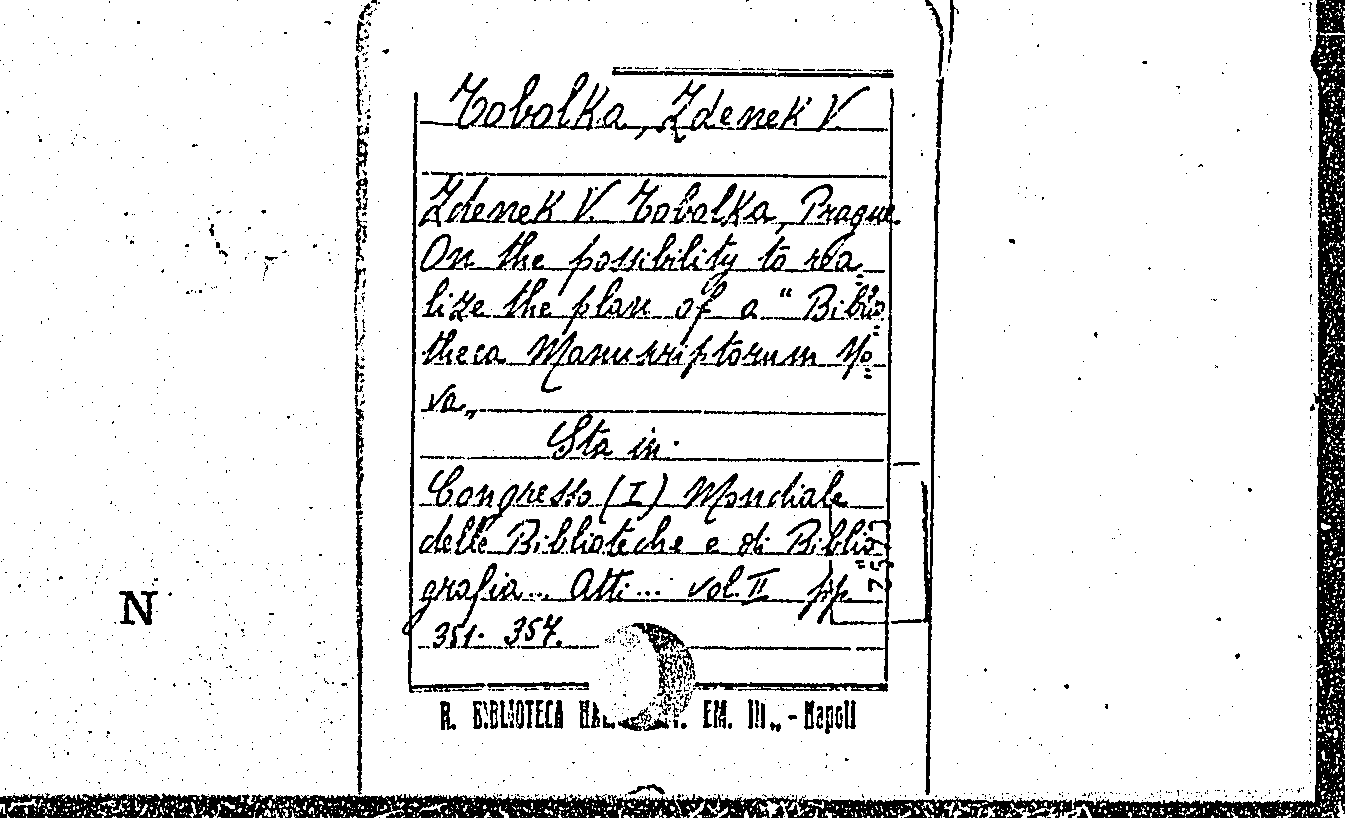 Tobolka, Zdenek V
Zdenek V. Tobolka, Prague.
On the possibility to rea=
lize the plan of a "Biblio=
theca Manuscriptorum No=
va„
Sta in:
Congresso (I) Mondiale
delle Biblioteche e di Biblio=
grafia... Atti... vol. II pp
351-357.
R. BIBLIOTECA EM. III„ - Napoli
N